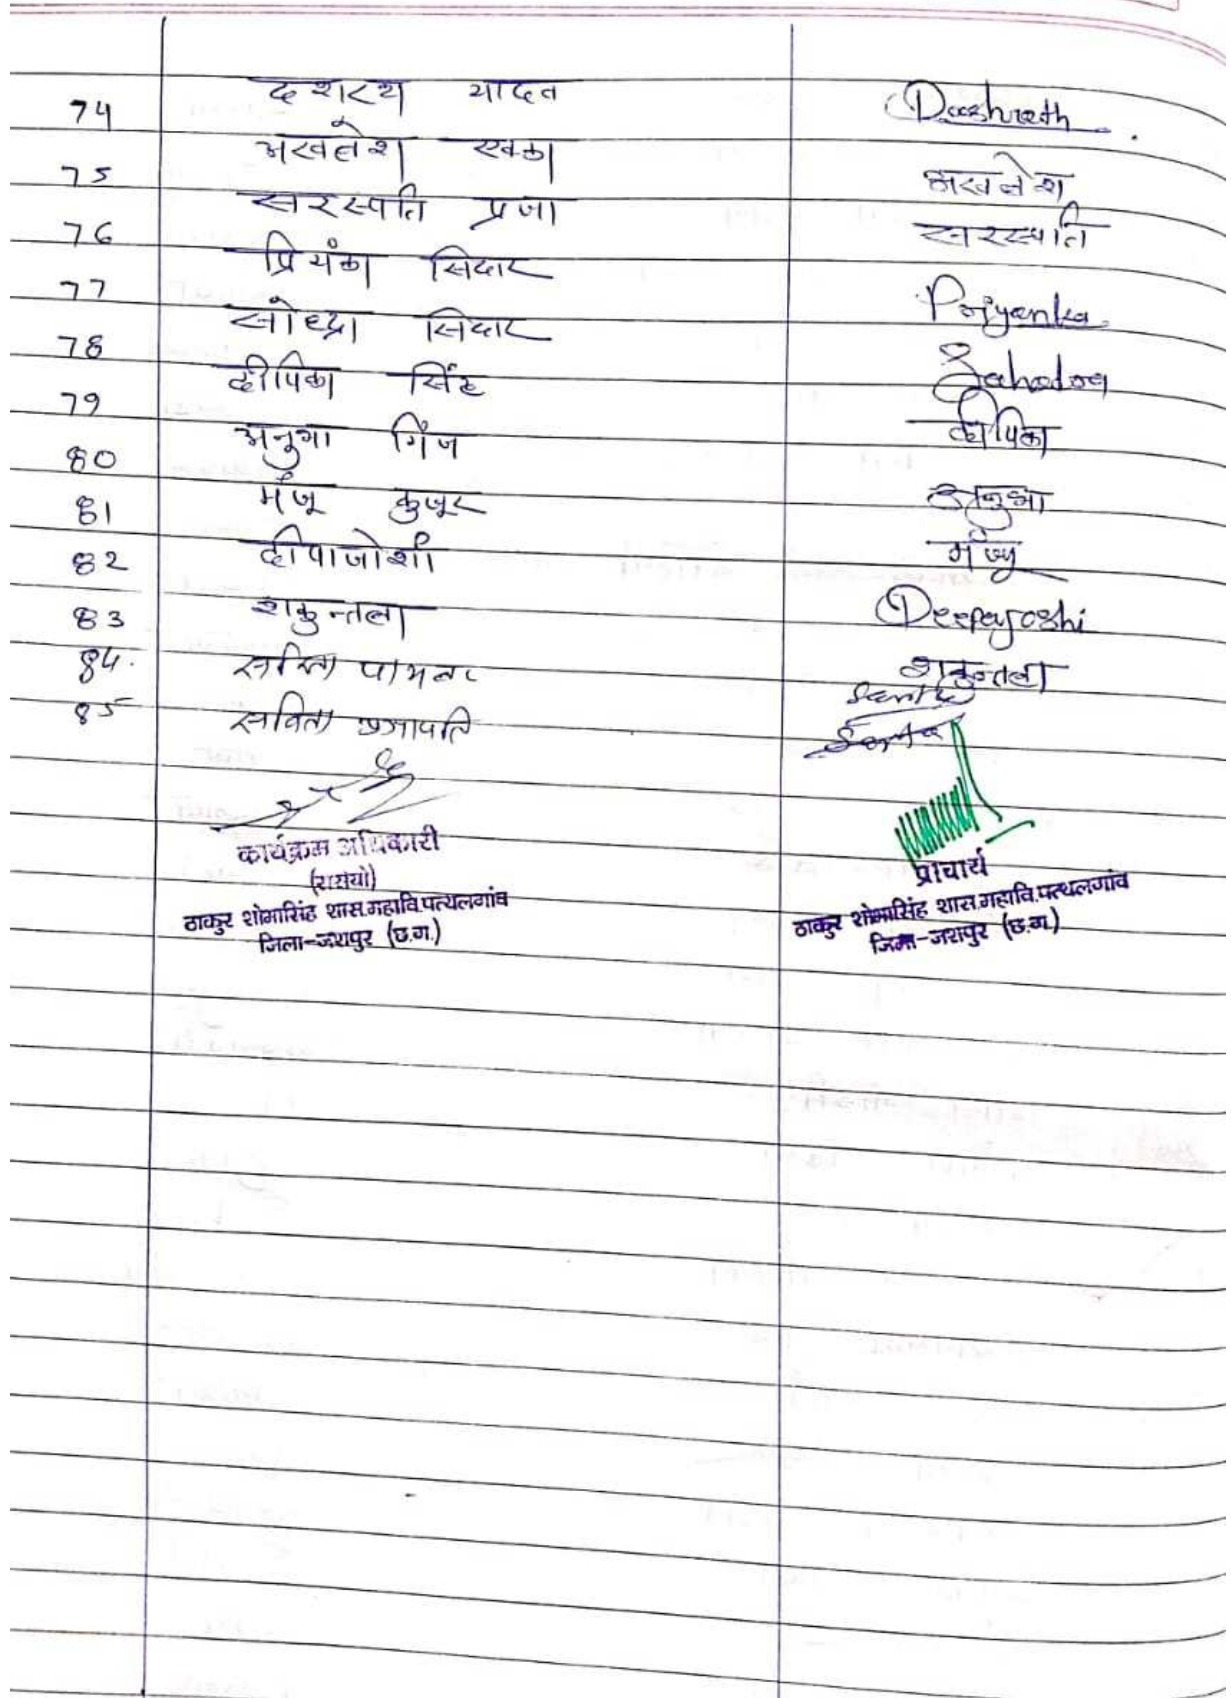 74 दशरथ यादव Dashrath
75 अखलेश एक्का अखलेश
76 सरस्पति प्रजा सरस्पति
77 प्रियंका सिदार Priyanka
78 सोहद्रा सिदार Sahodra
79 दीपिका सिंह दीपिका
80 अनुभा मिंज अनुभा
81 मंजू कुजूर मंजू
82 दीपाजोशी Deepajoshi
83 शकुन्तला शकुन्तला
84. सरिता
85 सविता प्रजापति
कार्यक्रम अधिकारी
(रासेयो)
ठाकुर शोभासिंह शास.महावि.पत्थलगांव
जिला-जशपुर (छ.ग.)
प्राचार्य
ठाकुर शोभासिंह शास.महावि.पत्थलगांव
जिला-जशपुर (छ.ग.)